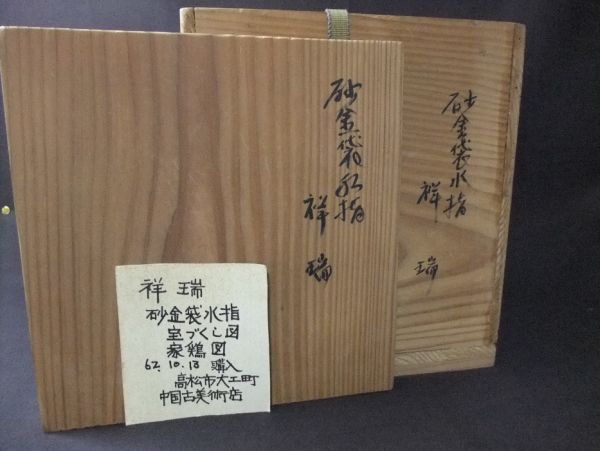 砂金袋水指
祥瑞
砂金袋水指
祥瑞
祥瑞
砂金袋水指
宝づくし図
家鶏図
62.10.13 購入
高松市大工町
中国古美術店